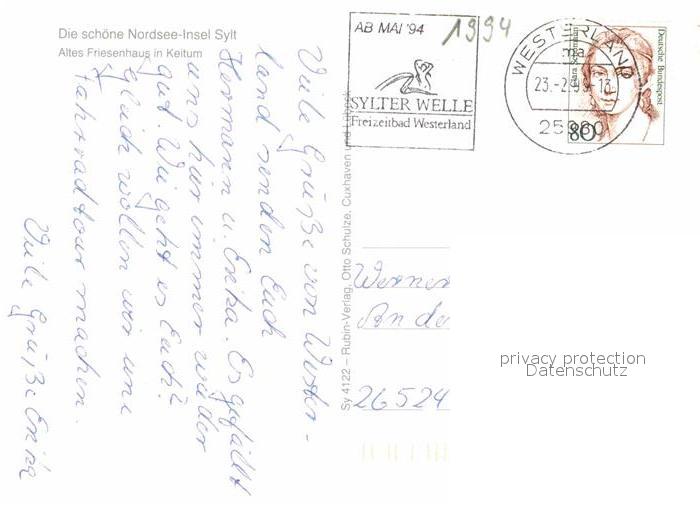 Die schöne Nordsee-Insel Sylt
Altes Friesenhaus in Keitum
Viele Grüße von Wester-
land senden Euch
Hermann u. Erika. Es gefällt
uns hier immer wieder
gut. Wie geht es Euch?
Gleich wollen wir eine
Fahrradtour machen.
Viele Grüße Erika
Sy 4122 – Rubin-Verlag, Otto Schulze, Cuxhaven und
AB MAI '94
1994
SYLTER WELLE
Freizeitbad Westerland
WESTERLAND
23.-2
13
25980
Deutsche Bundespost
80
Werner
An de
26524
privacy protection
Datenschutz